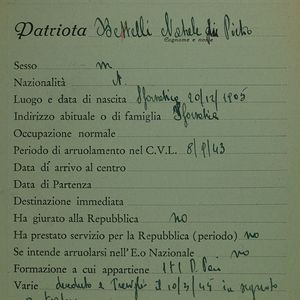 Patriota Bettelli Natale di Pietro
Cognome e nome
Sesso m
Nazionalità
Luogo e data di nascita 20/12/1905
Indirizzo abituale o di famiglia
Occupazione normale
Periodo di arruolamento nel C.V.L. 8/9/43
Data di arrivo al centro
Data di Partenza
Destinazione immediata
Ha giurato alla Repubblica no
Ha prestato servizio per la Repubblica (periodo) no
Se intende arruolarsi nell'E.o Nazionale no
Formazione a cui appartiene
Varie deceduto a il 10/3/45 in seguito